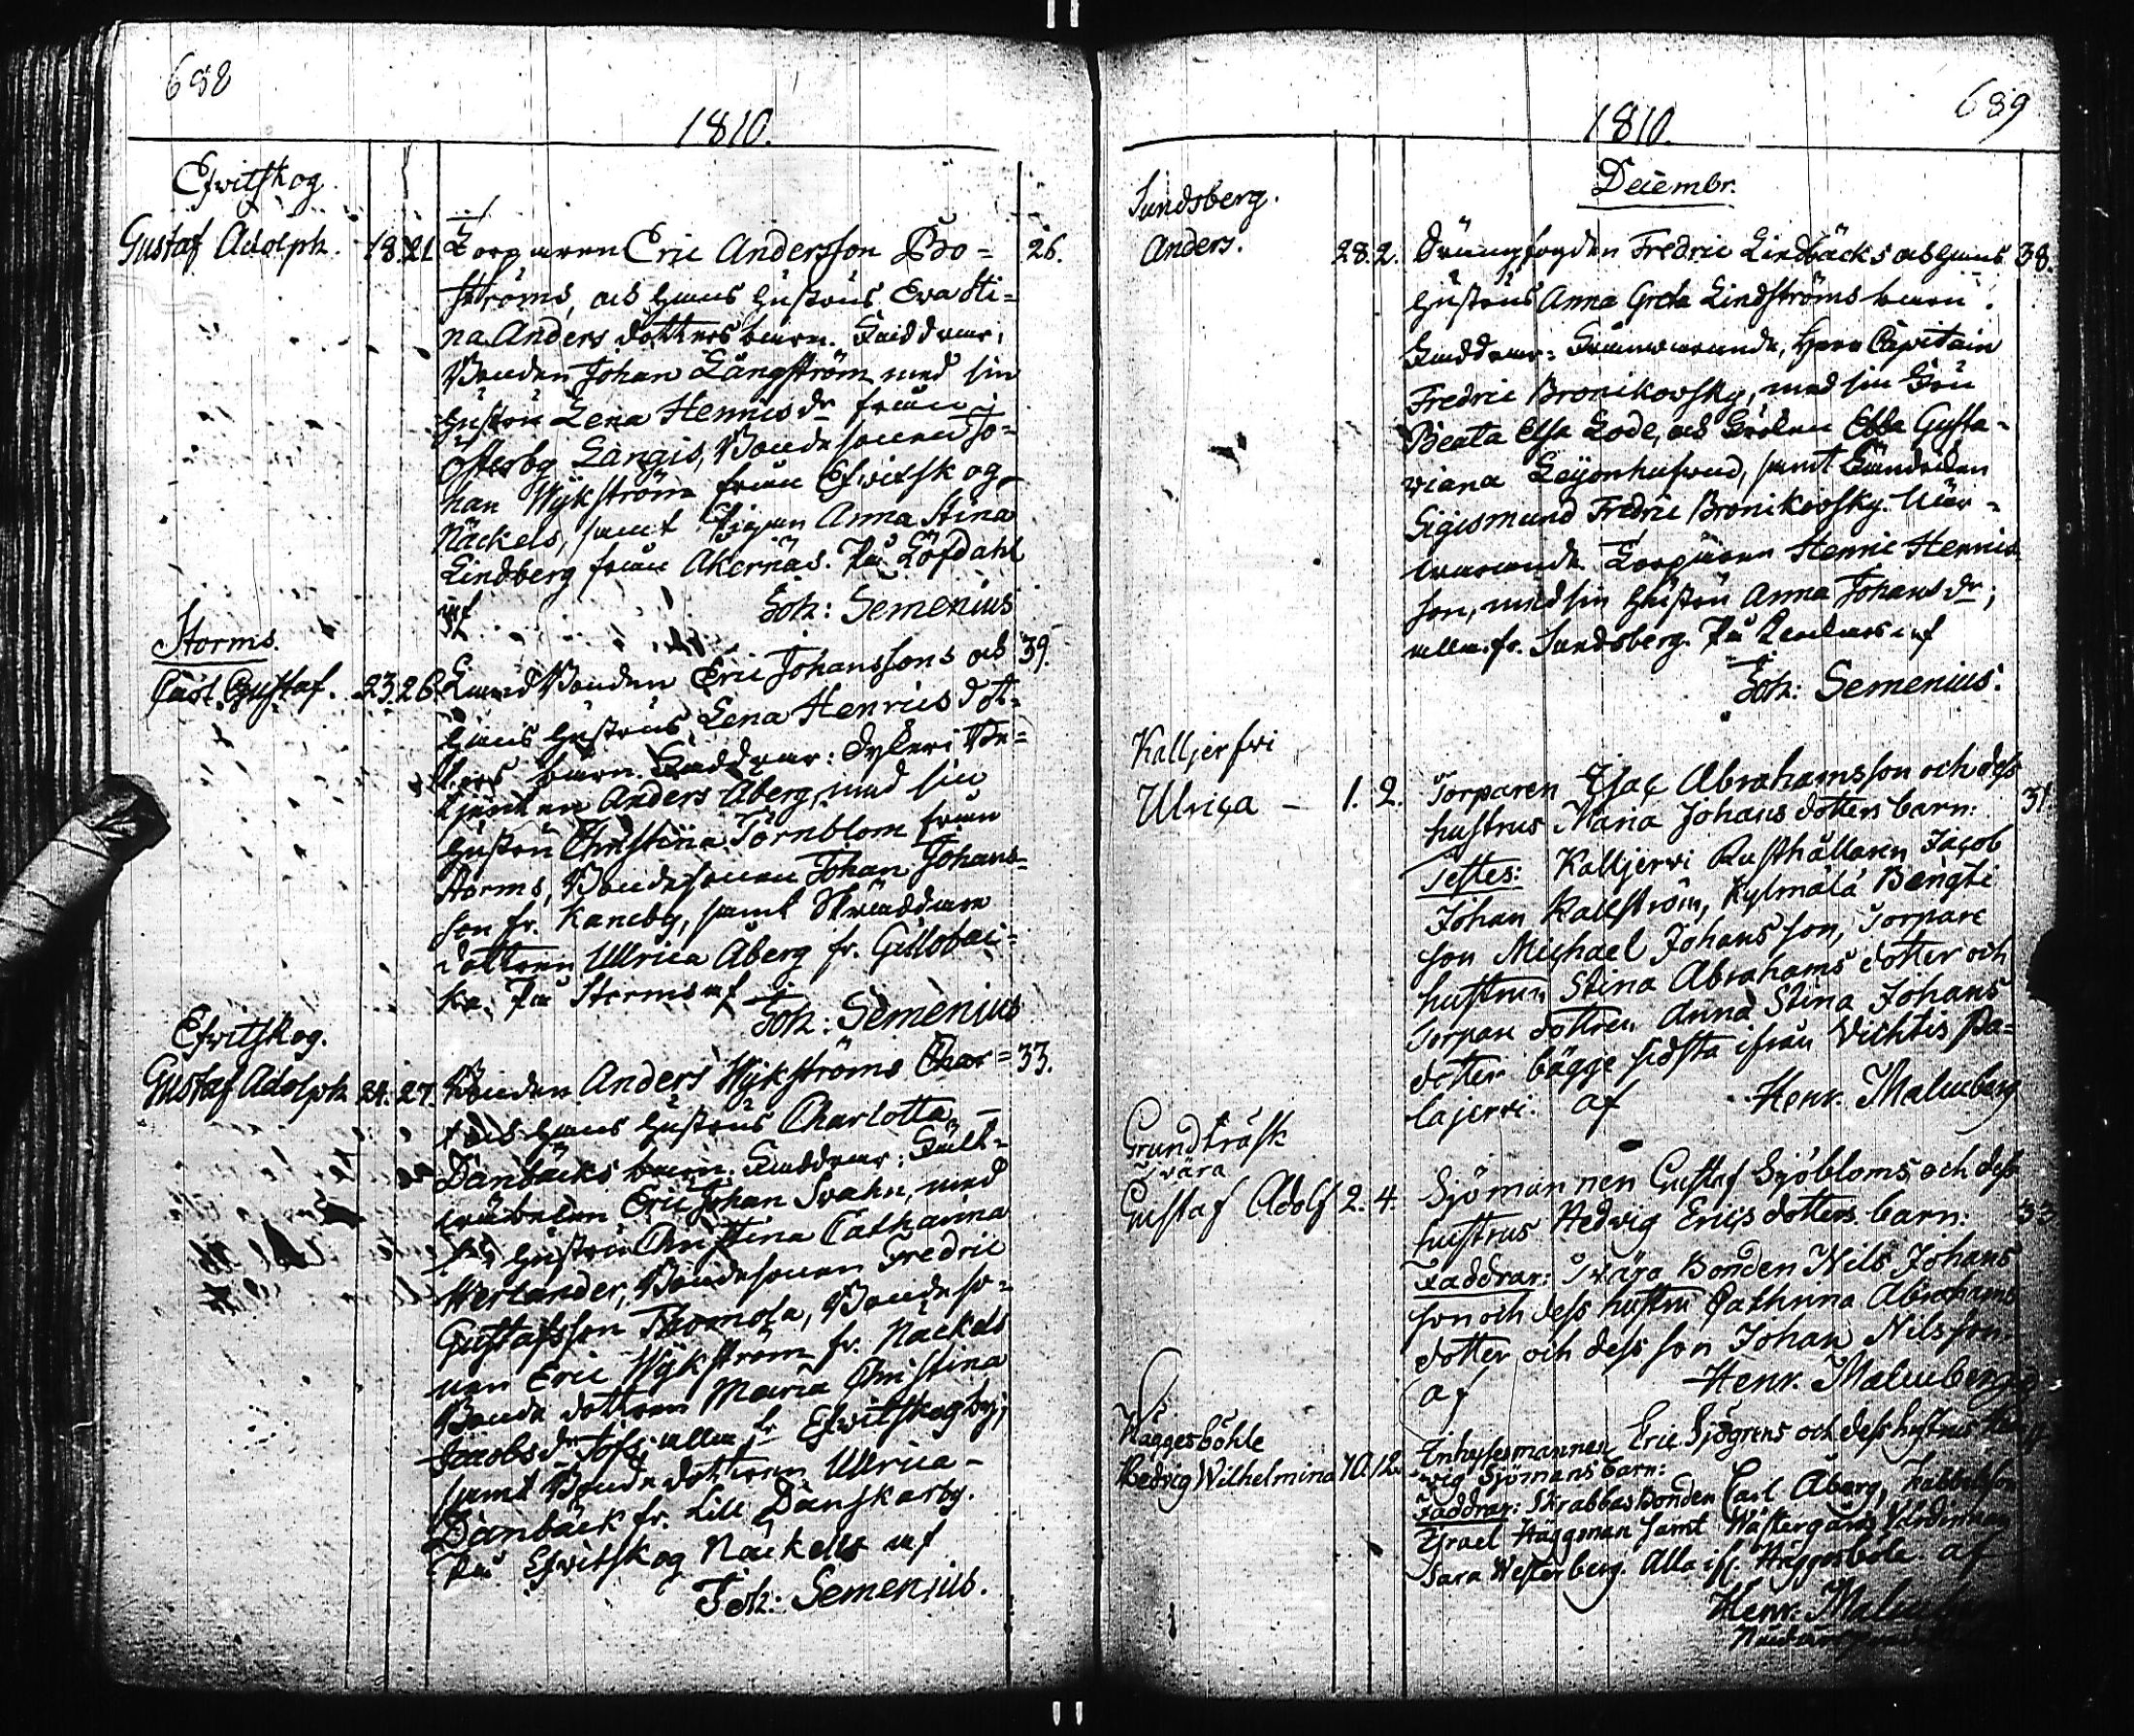 688
1810.
Efwitskog
Gustaf Adolph. 18. 21. Torparen Eric Andersson Bro= 26.
ströms, och hans hustrus Eva Sti=
na Anders dotters barn. Faddrar:
Bonden Johan Långström med sin
hustru Lena Henricsdr från
Österby Långis, Bondesonen Jo=
han Wykström från Efwitskog
Näckels, samt Pigan Anna Stina
Lindberg från Åkernäs. På Löfdahl
af Joh: Semenius
Storms.
Carl Gustaf. 23. 26. Bonden Eric Johanssons och 39.
hans hustrus Lena Henrics dot=
ters barn. Faddrar:
Anders Åberg, med sin
hustru Christina Törnblom från
Storms, Bondesonen Johan Johans=
son fr. Kaneby, samt Skräddare
dottren Ulrica Åberg fr. Gillobac=
ka. På Storms af
Joh: Semenius
Efwitskog.
Gustaf Adolph 24. 27. Bonden Anders Wykströms 33.
och hans hustrus Charlotta
Danbäcks barn. Faddrar:
Eric Johan Svahn, med
hustru Christina Catharina
Werlander, Bondesonen Fredric
Gustafsson Thomola, Bondeso=
nen Eric Wykström fr. Näckels
Bonde dottren Maria Christina
Jacobsdr alla fr Efwitskog by;
samt Bonde dottren Ulrica
Danbäck fr. Lill Danskarby.
På Efwitskog Näckels af
Joh: Semenius.
689
1810.
Decembr.
Sundsberg.
Anders. 28. 2. Fredric Lindbäcks och hans 38.
hustrus Anna Greta Lindströms barn.
Faddrar: Frånvarande, Herr Capitain
Fredric Bronikovsky, med sin Fru
Beata Elsa Lode, och Fröken Ebba Gusta=
viana Leijonhufvud, samt
Sigismund Fredric Bronikovsky. När=
varande Torparen Henric Henrics
son, med sin hustru Anna Johansdr;
alla fr. Sundsberg. På af
Joh: Semenius.
Kalljerfvi
Ulrica – 1. 2. Torparen Isac Abrahamsson och dess
hustrus Maria Johans dotters barn:
Testes: Kalljervi Rusthållaren Jacob
Johan Kallström, Kylmälä Bengts
son Michael Johansson, Torpare
hustrun Stina Abrahams dotter och
Torpare dottren Anna Stina Johans
dotter bägge sidsta ifrån Vichtis Pa=
lajervi. af Henr. Malmberg
Grundträsk
Tvära
Gustaf Adolf 2. 4. Sjömannen Gustaf Sjöbloms och dess
hustrus Hedvig Erics dotters barn: 33
Faddrar: Tvära Bonden Nils Johans
son och dess hustru Cathrina Abrahams
dotter och dess son Johan Nilsson.
af Henr. Malmberg
Häggesböhle
Hedvig Wilhelmina 10. 12. Inhysesmannen Eric Sjögrens och dess hustrus
Sjömans barn:
Faddrar: Skrabbas Bonden Carl Åberg,
Israel Häggman samt Wästergårds
Sara Westerberg. Alla if. Häggesböle. af
Henr. Malmberg